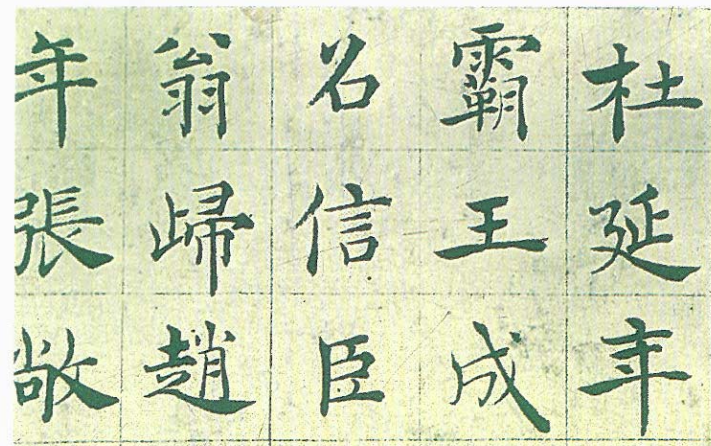 杜延年
霸王成
召信臣
翁歸趙
年張敞